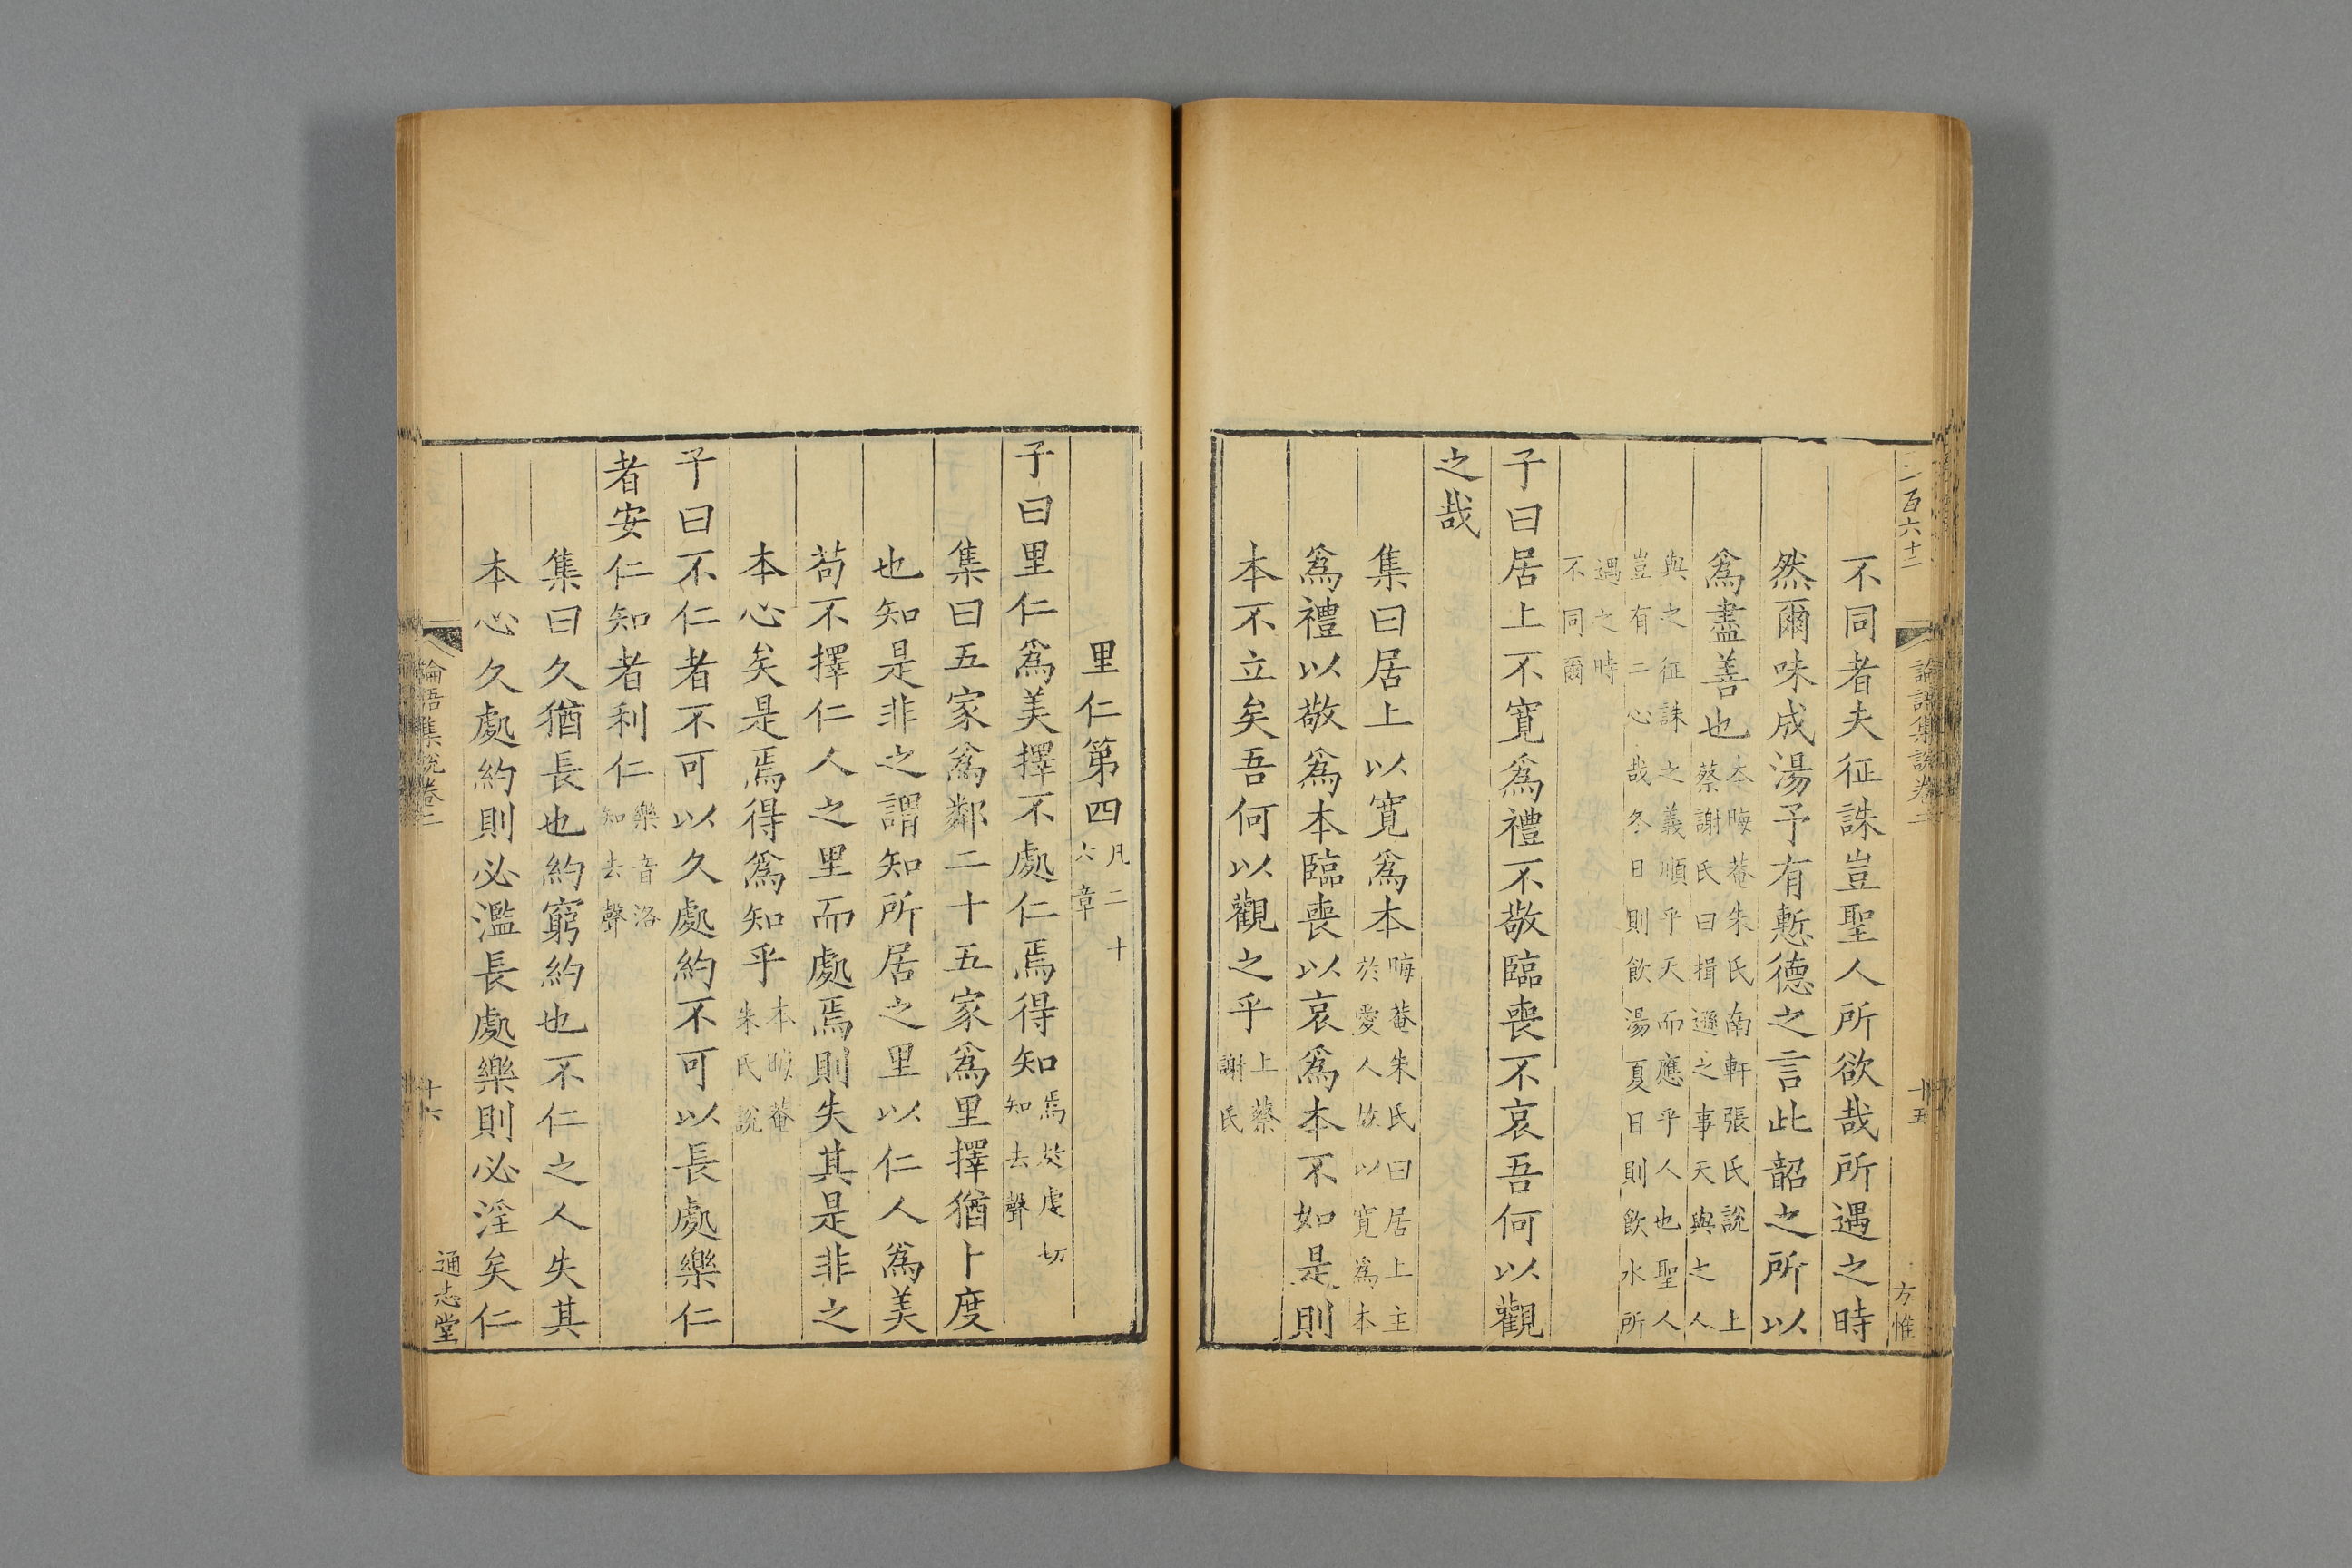 二百六十二
論語集說卷二
十五
方惟
不同者夫征誅豈聖人所欲哉所遇之時
然爾味成湯予有慙德之言此韶之所以
爲盡善也
本晦菴朱氏南軒張氏說上
蔡謝氏曰揖遜之事天與之人
與之征誅之義順乎天而應乎人也聖人
豈有二心哉冬日則飲湯夏日則飲水所
遇之時
不同爾
子曰居上不寬爲禮不敬臨喪不哀吾何以觀
之哉
集曰居上以寬爲本
晦菴朱氏曰居上主
於愛人故以寬爲本
爲禮以敬爲本臨喪以哀爲本不如是則
本不立矣吾何以觀之乎
上蔡
謝氏
里仁第四
凡二十
六章
子曰里仁爲美擇不處仁焉得知
焉於虔切
知去聲
集曰五家爲鄰二十五家爲里擇猶卜度
也知是非之謂知所居之里以仁人爲美
苟不擇仁人之里而處焉則失其是非之
本心矣是焉得爲知乎
本晦菴
朱氏說
子曰不仁者不可以久處約不可以長處樂仁
者安仁知者利仁
樂音洛
知去聲
集曰久猶長也約窮約也不仁之人失其
本心久處約則必濫長處樂則必淫矣仁
論語集說卷二
十六
通志堂